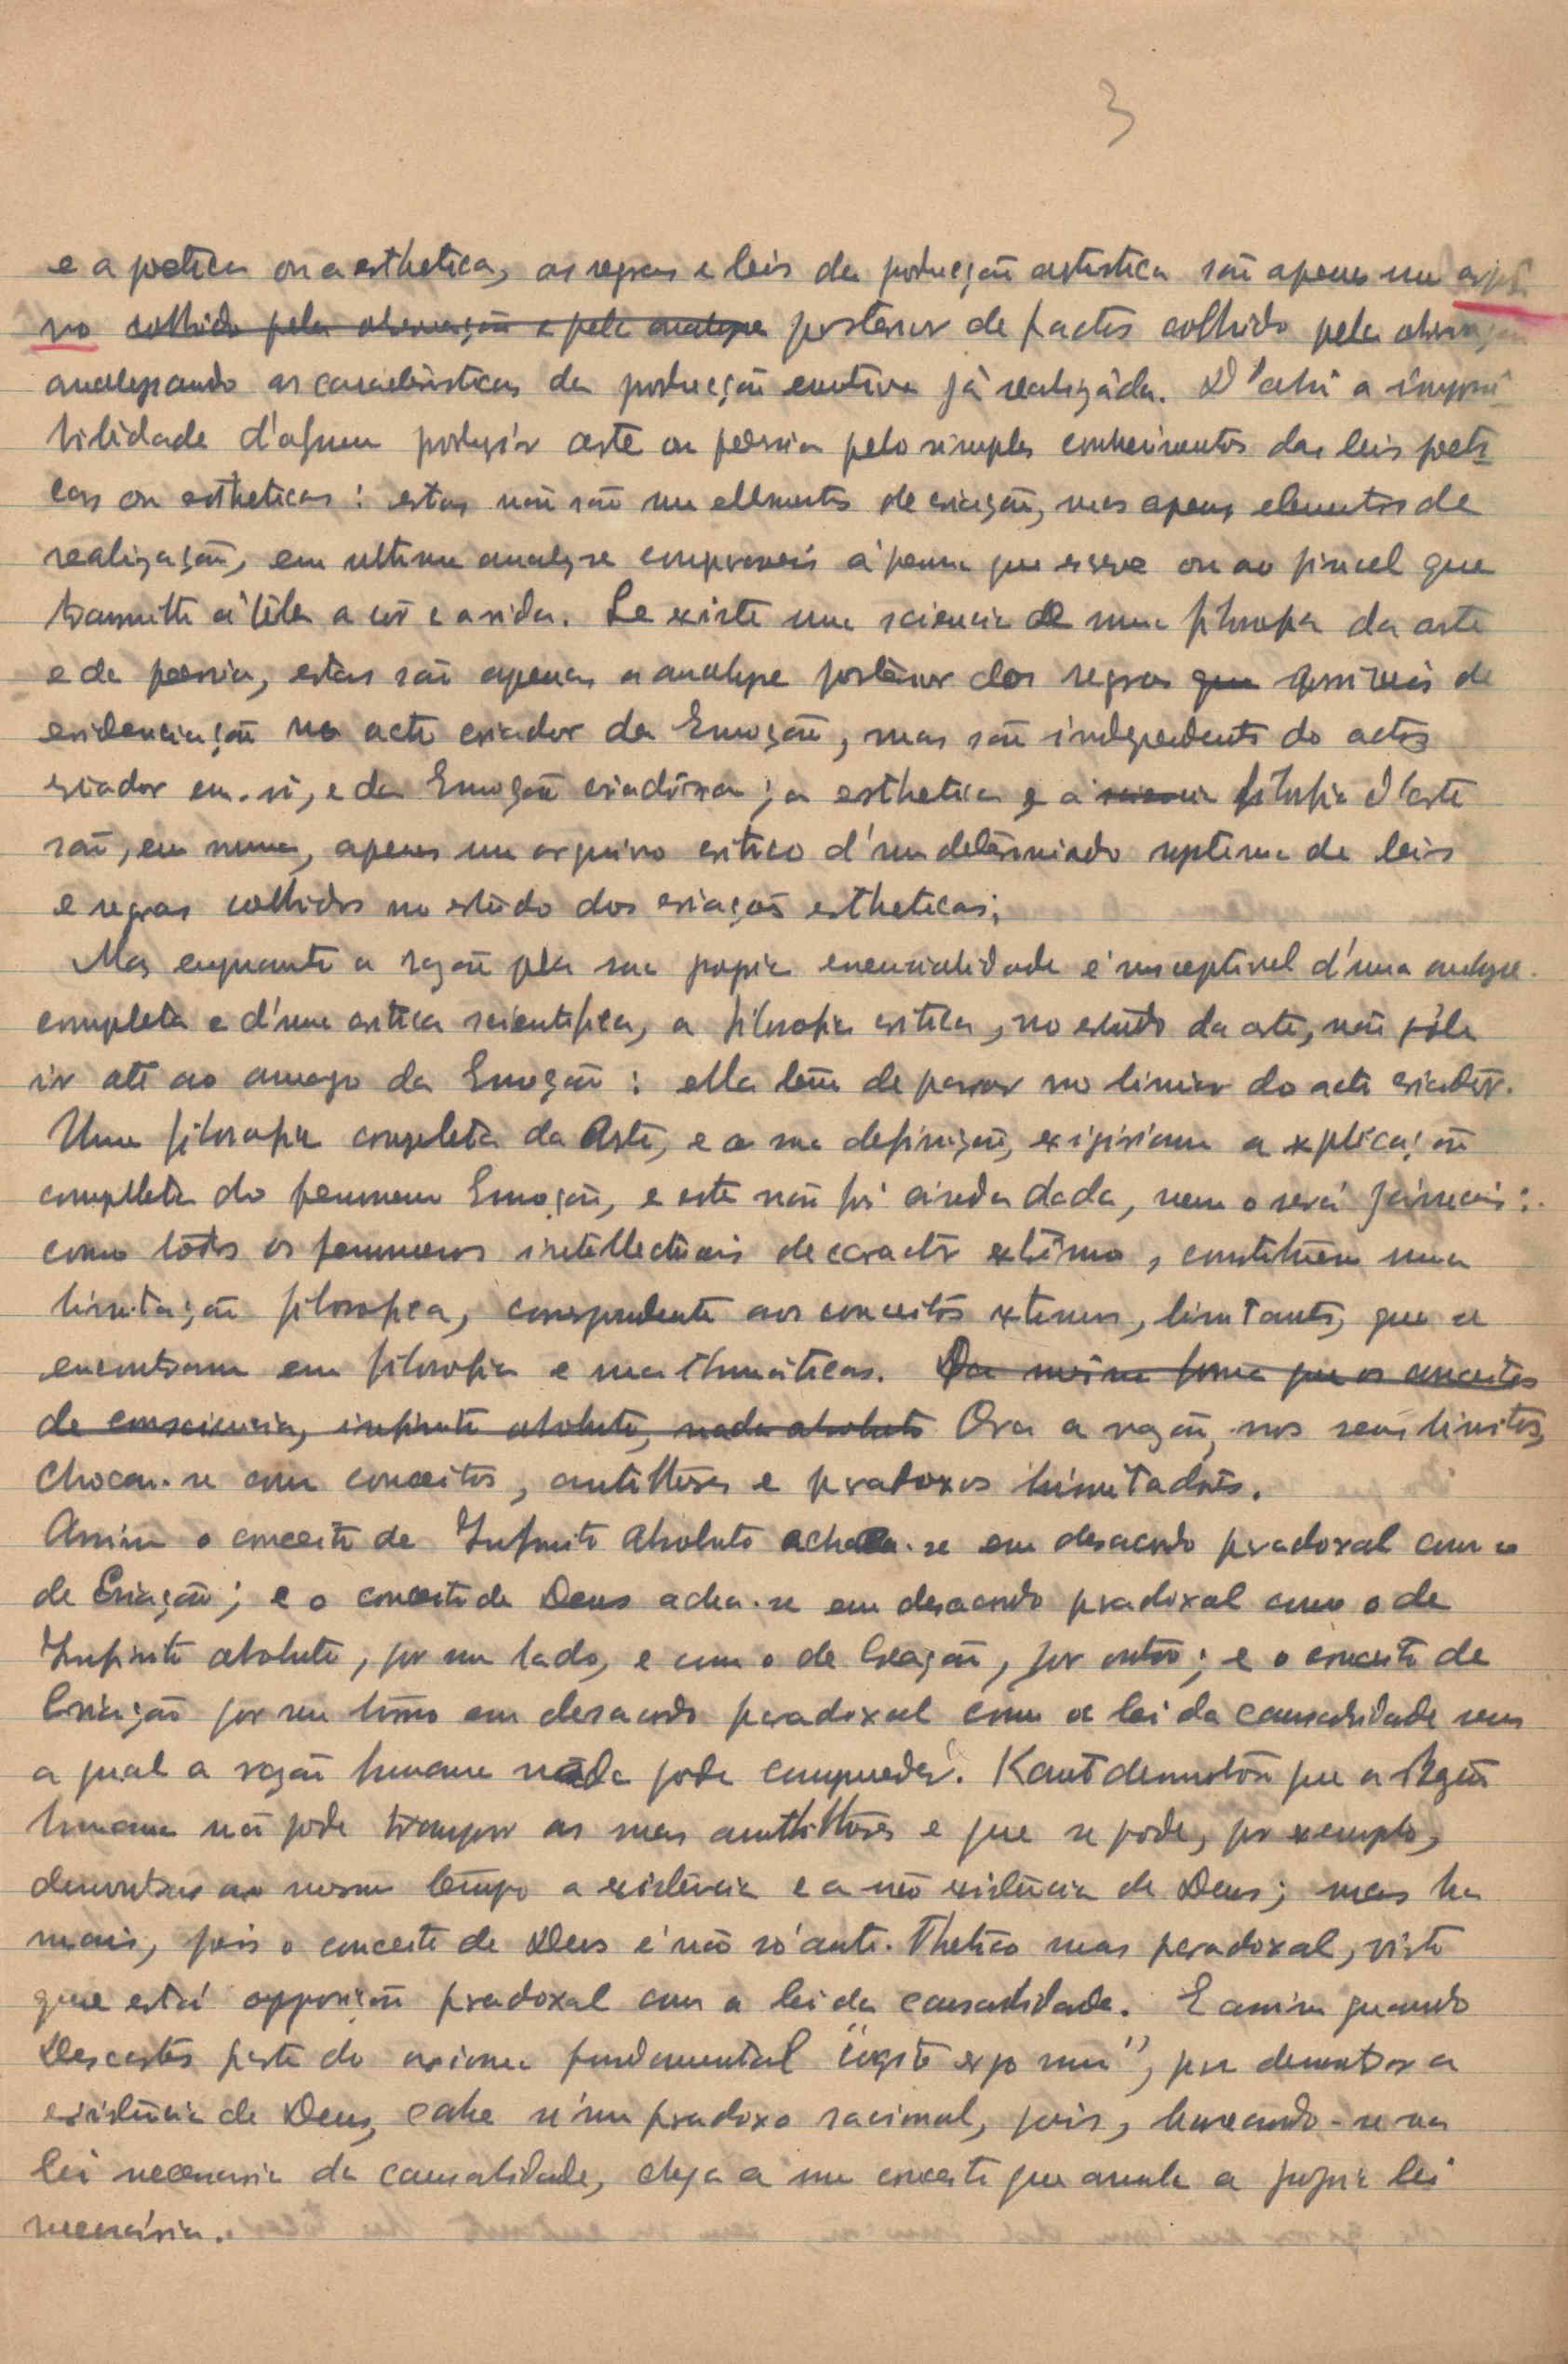 3
e a poetica ou a esthetica, as regras e leis da producção artistica são apenas um
vo colhido pela observação e pela analyse posterior de factos colhido pela
analysando as caracteristicas da producção emotiva já realizáda. D'ahi a impossi
bilidade d'alguem produzir arte ou poesia pelo simples conhecimentos das leis poeti
cas ou estheticas: estas não são um ellemento de criação, mas apenas elementos de
realização, em ultima analyse comparaveis á penna que escreve ou ao pincel que
transmitte á téla a côr e a vida. Se existe uma sciencia de uma filosofia da arte
e da poesia, estas são apenas a analyse posterior das regras que possiveis de
evidenciação no acto criador da Emoção, mas são independente do actos
criador em-si, e da Emoção criadôra; a esthetica e a sciencia filosofia d'arte
são, em summa, apenas um arquivo critico d'um determinado systema de leis
e regras colhidas no estudo das criações estheticas;
Mas emquanto a razão pela sua propria essencialidade é susceptivel d'uma analyse
completa e d'uma critica scientifica, a filosofia critica, no estudo da arte, não póde
ir até ao amago da Emoção: ella tem de parar no limiar do acto criadôr.
Uma filosofia completa da Arte, e a sua definição, exigiriam a explicação
complleta do fenomeno Emoção, e esta não foi ainda dada, nem o será jámais:
como todos os fenomenos intellectuais de caracter extremo, constituem uma
limitação filosofica, correspondente aos conceitos extremos, limitantes, que se
encontram em filosofia e mathmáticas. Da mesma forma que os conceitos
de consciencia, infinito absoluto, nada absoluto Ora a razão, nos seus limites,
chocam-se com conceitos, antitheses e paradoxos limitadôres.
Assim o conceito de Infinito Absoluto acha-se em desacordo paradoxal com o
de Criação; e o conceito de Deus acha-se em desacordo paradoxal com o de
Infinito absoluto, por um lado, e com o de Creação, por outro; e o conceito de
Criação por seu turno em desacordo paradoxal com a lei da causalidade sem
a qual a razão humana nada pode comprender. Kant demonstrou que a Razão
humana não pode transpor as suas antitheses e que se pode, por exemplo,
demonstrar ao mesmo tempo a existencia e a não existencia de Deus; mas ha
mais, pois o conceito de Deus é não só anti-thetico mas paradoxal, visto
que está opposição paradoxal com a lei da causalidade. E assim quando
Descartes parte do axioma fundamental "cogito ergo sum", para demonstrar a
existencia de Deus, cahe n'um paradoxo racional, pois, baseando-se na
lei necessaria da causalidade, chega a um conceito que anula a propria lei
necessária.